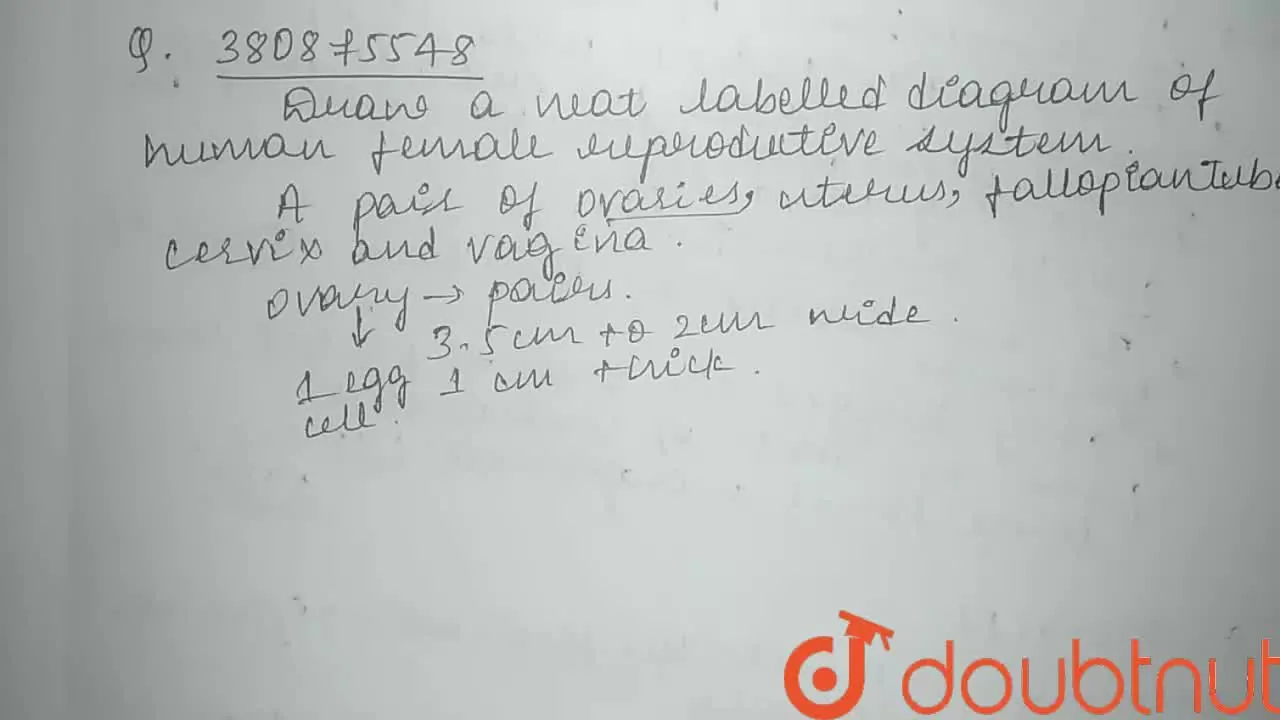 Q. 380875548
Draw a neat labelled diagram of
human female reproductive system.
A pair of ovaries, uterus, fallopian tube
cervix and vagina.
ovary → pairs.
↓ 3.5 cm to 2cm wide.
1 egg 1 cm thick.
cell.
doubtnut